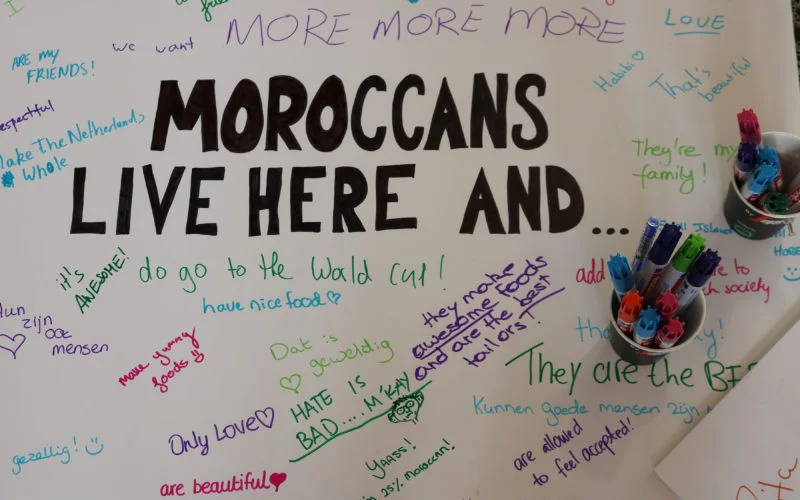 we want
MORE MORE MORE
LOVE
ARE MY
FRIENDS!
Habibi
That's
beautiful
espectful
Make The Netherlands
Whole
MOROCCANS
LIVE HERE AND...
They're my
family!
it's
AWESOME!
do go to the World cup!
have nice food
they make
awesome foods
and are the best
tailors!
add
to
ch society
HOME
zijn
ook
mensen
make yummy
foods
Dat is
geweldig
HATE IS
BAD....M'KAY
They are the
Only Love
Kunnen goede mensen zijn
gezellig!
are beautiful
YAASS!
in 25% moroccan!
are allowed
to feel accepted!